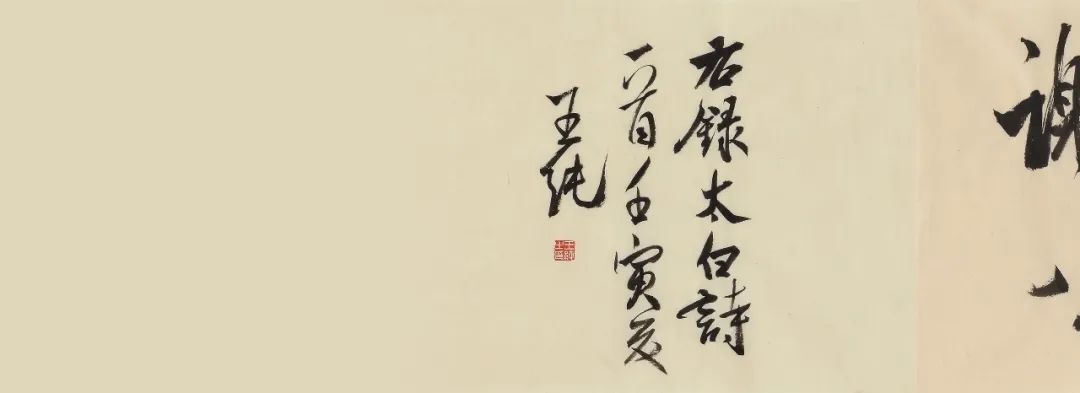 右録太白詩
一首壬寅夏
王純